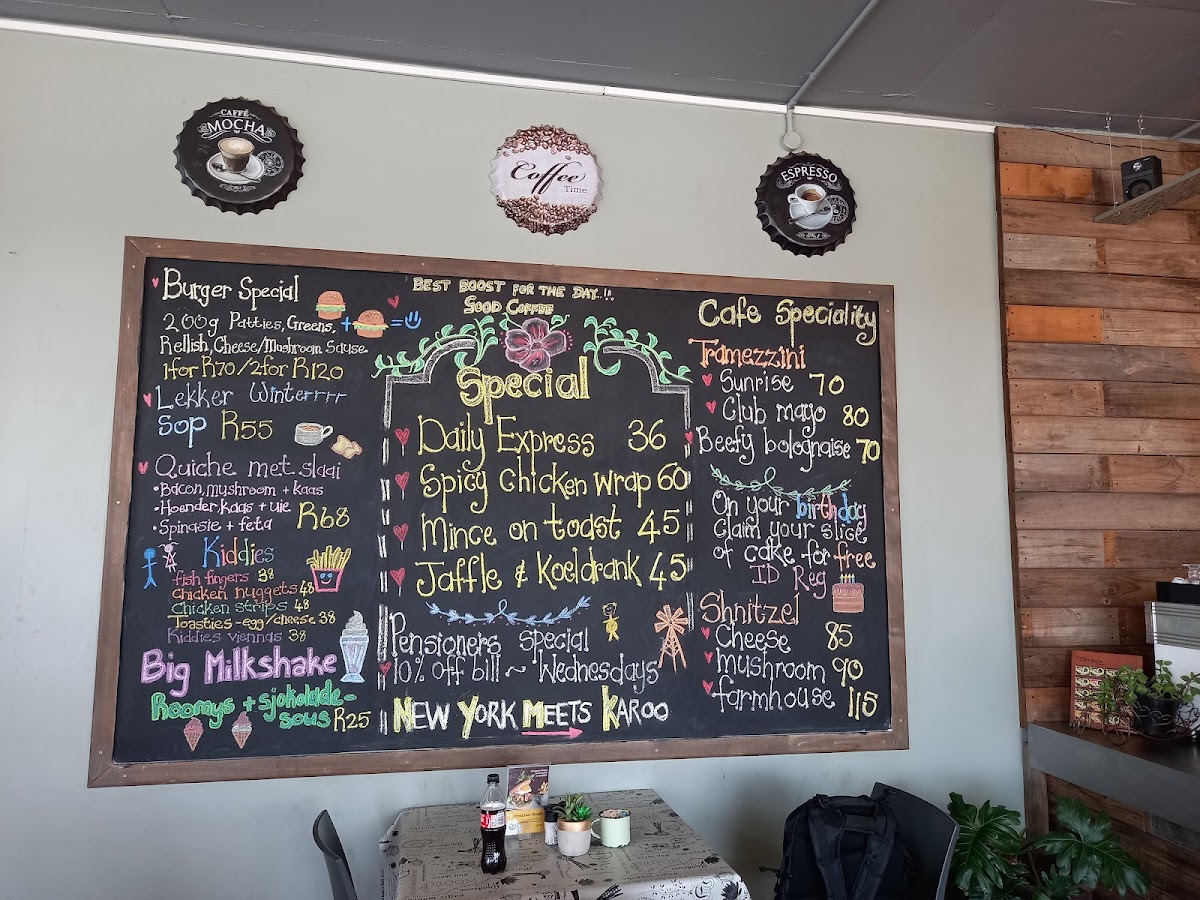 CAFFÉ
MOCHA
Coffee
Time
ESPRESSO
Burger Special
200g Patties, Greens, + =
Rellish, Cheese/Mushroom Sause
1 for R70/2 for R120
Lekker Winterrrr
Sop R55
Quiche met slaai
• Bacon, myshroom + kaas
• Hoender, kaas + uie
• Spinasie + feta R68
Kiddies
fish fingers 38
chicken nuggets 48
Chicken strips 48
Toasties - egg/cheese 38
Kiddies viennas 38
Big Milkshake
Roomys + sjokolade-
sous R25
BEST BOOST FOR THE DAY..!!
SOOD COFFEE
Special
Daily Express 36
Spicy Chicken wrap 60
Mince on toast 45
Jaffle & Koeldrank 45
Pensioners special
10% off bill ~ Wednesdays
NEW YORK MEETS KAROO
Cafe Speciality
Tramezzini
Sunrise 70
Club mayo 80
Beefy bolognaise 70
On your birthday
claim your slice
of cake for free
ID Req
Shnitzel
Cheese 85
mushroom 90
farmhouse 115